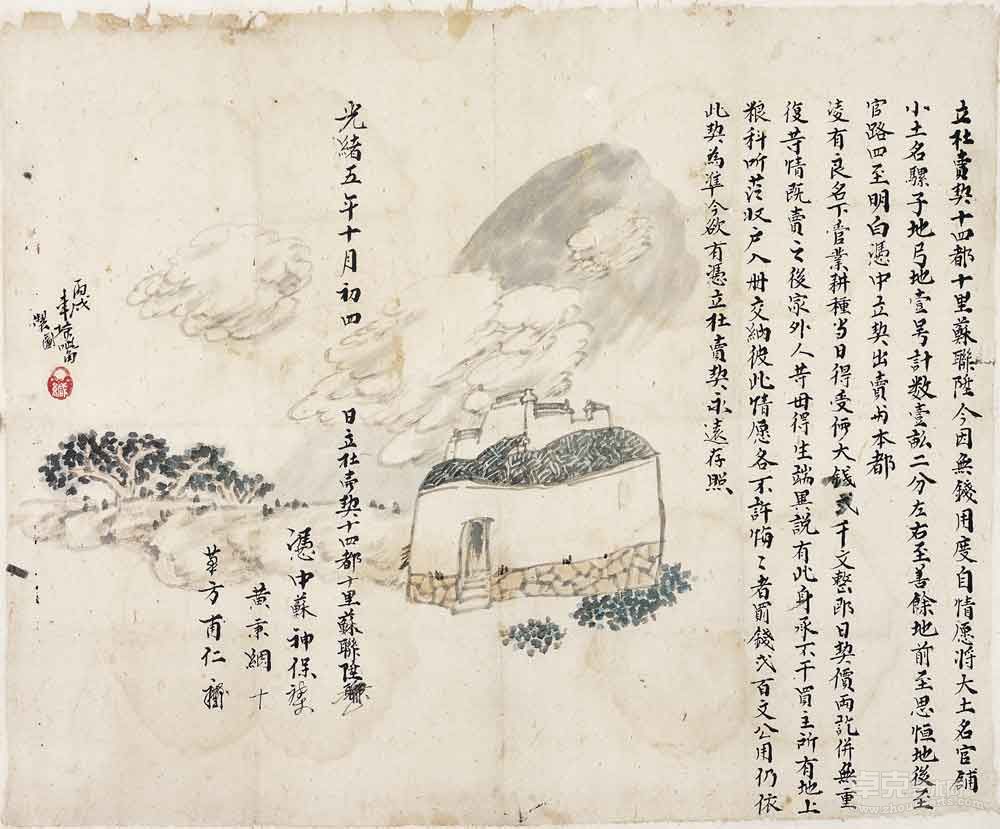 立杜賣契十四都十里蘇聯陞今因無錢用度自情愿將大土名官舖
小土名騾子地弓地壹号計数壹畝二分左右至善餘地前至思恒地後至
官路四至明白憑中立契出賣与本都
凌有良名下管業耕種当日得受価大錢弍千文整即日契價両訖併無重
復芋情既賣之後家外人芋毋得生端異説有此身承不干買主所有地上
粮科听從収戸入册交納彼此情愿各不許悔〻者罰錢弍百文公用仍依
此契為準今欲有憑立杜賣契永遠存照
光緒五年十月初四 日立杜賣契十四都十里蘇聯陞
憑中蘇神保
黄秉綱十
葉方甫仁
丙戌
www.zhuokearts.com